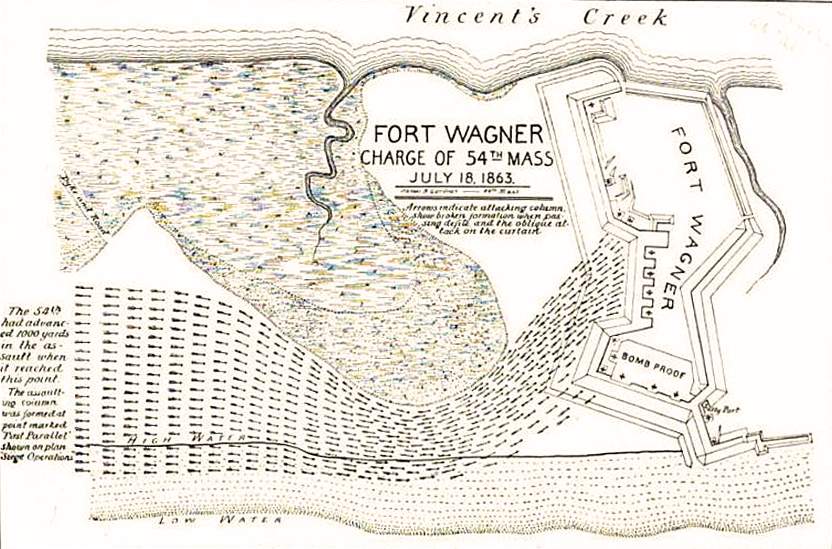 Vincent's Creek
FORT WAGNER
CHARGE OF 54TH MASS
JULY 18, 1863.
Arrows indicate attacking column,
show broken formation when pas-
sing defile and the oblique at-
tack on the curtain
FORT WAGNER
BOMB PROOF
Port
The 54th
had advanc-
ed 1000 yards
in the as-
sault when
it reached
this point.
The assault-
ing column
was formed at
point marked
"First Parallel"
shown on plan
Siege Operations
HIGH WATER
LOW WATER